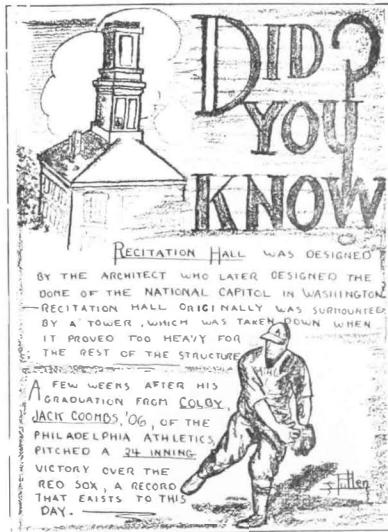 DID
YOU
KNOW?
RECITATION HALL WAS DESIGNED
BY THE ARCHITECT WHO LATER DESIGNED THE
DOME OF THE NATIONAL CAPITOL IN WASHINGTON
RECITATION HALL ORIGINALLY WAS SURMOUNTED
BY A TOWER, WHICH WAS TAKEN DOWN WHEN
IT PROVED TOO HEAVY FOR
THE REST OF THE STRUCTURE
A FEW WEEKS AFTER HIS
GRADUATION FROM COLBY,
JACK COOMBS, '06, OF THE
PHILADELPHIA ATHLETICS
PITCHED A 24 INNING
VICTORY OVER THE
RED SOX, A RECORD
THAT EXISTS TO THIS
DAY.